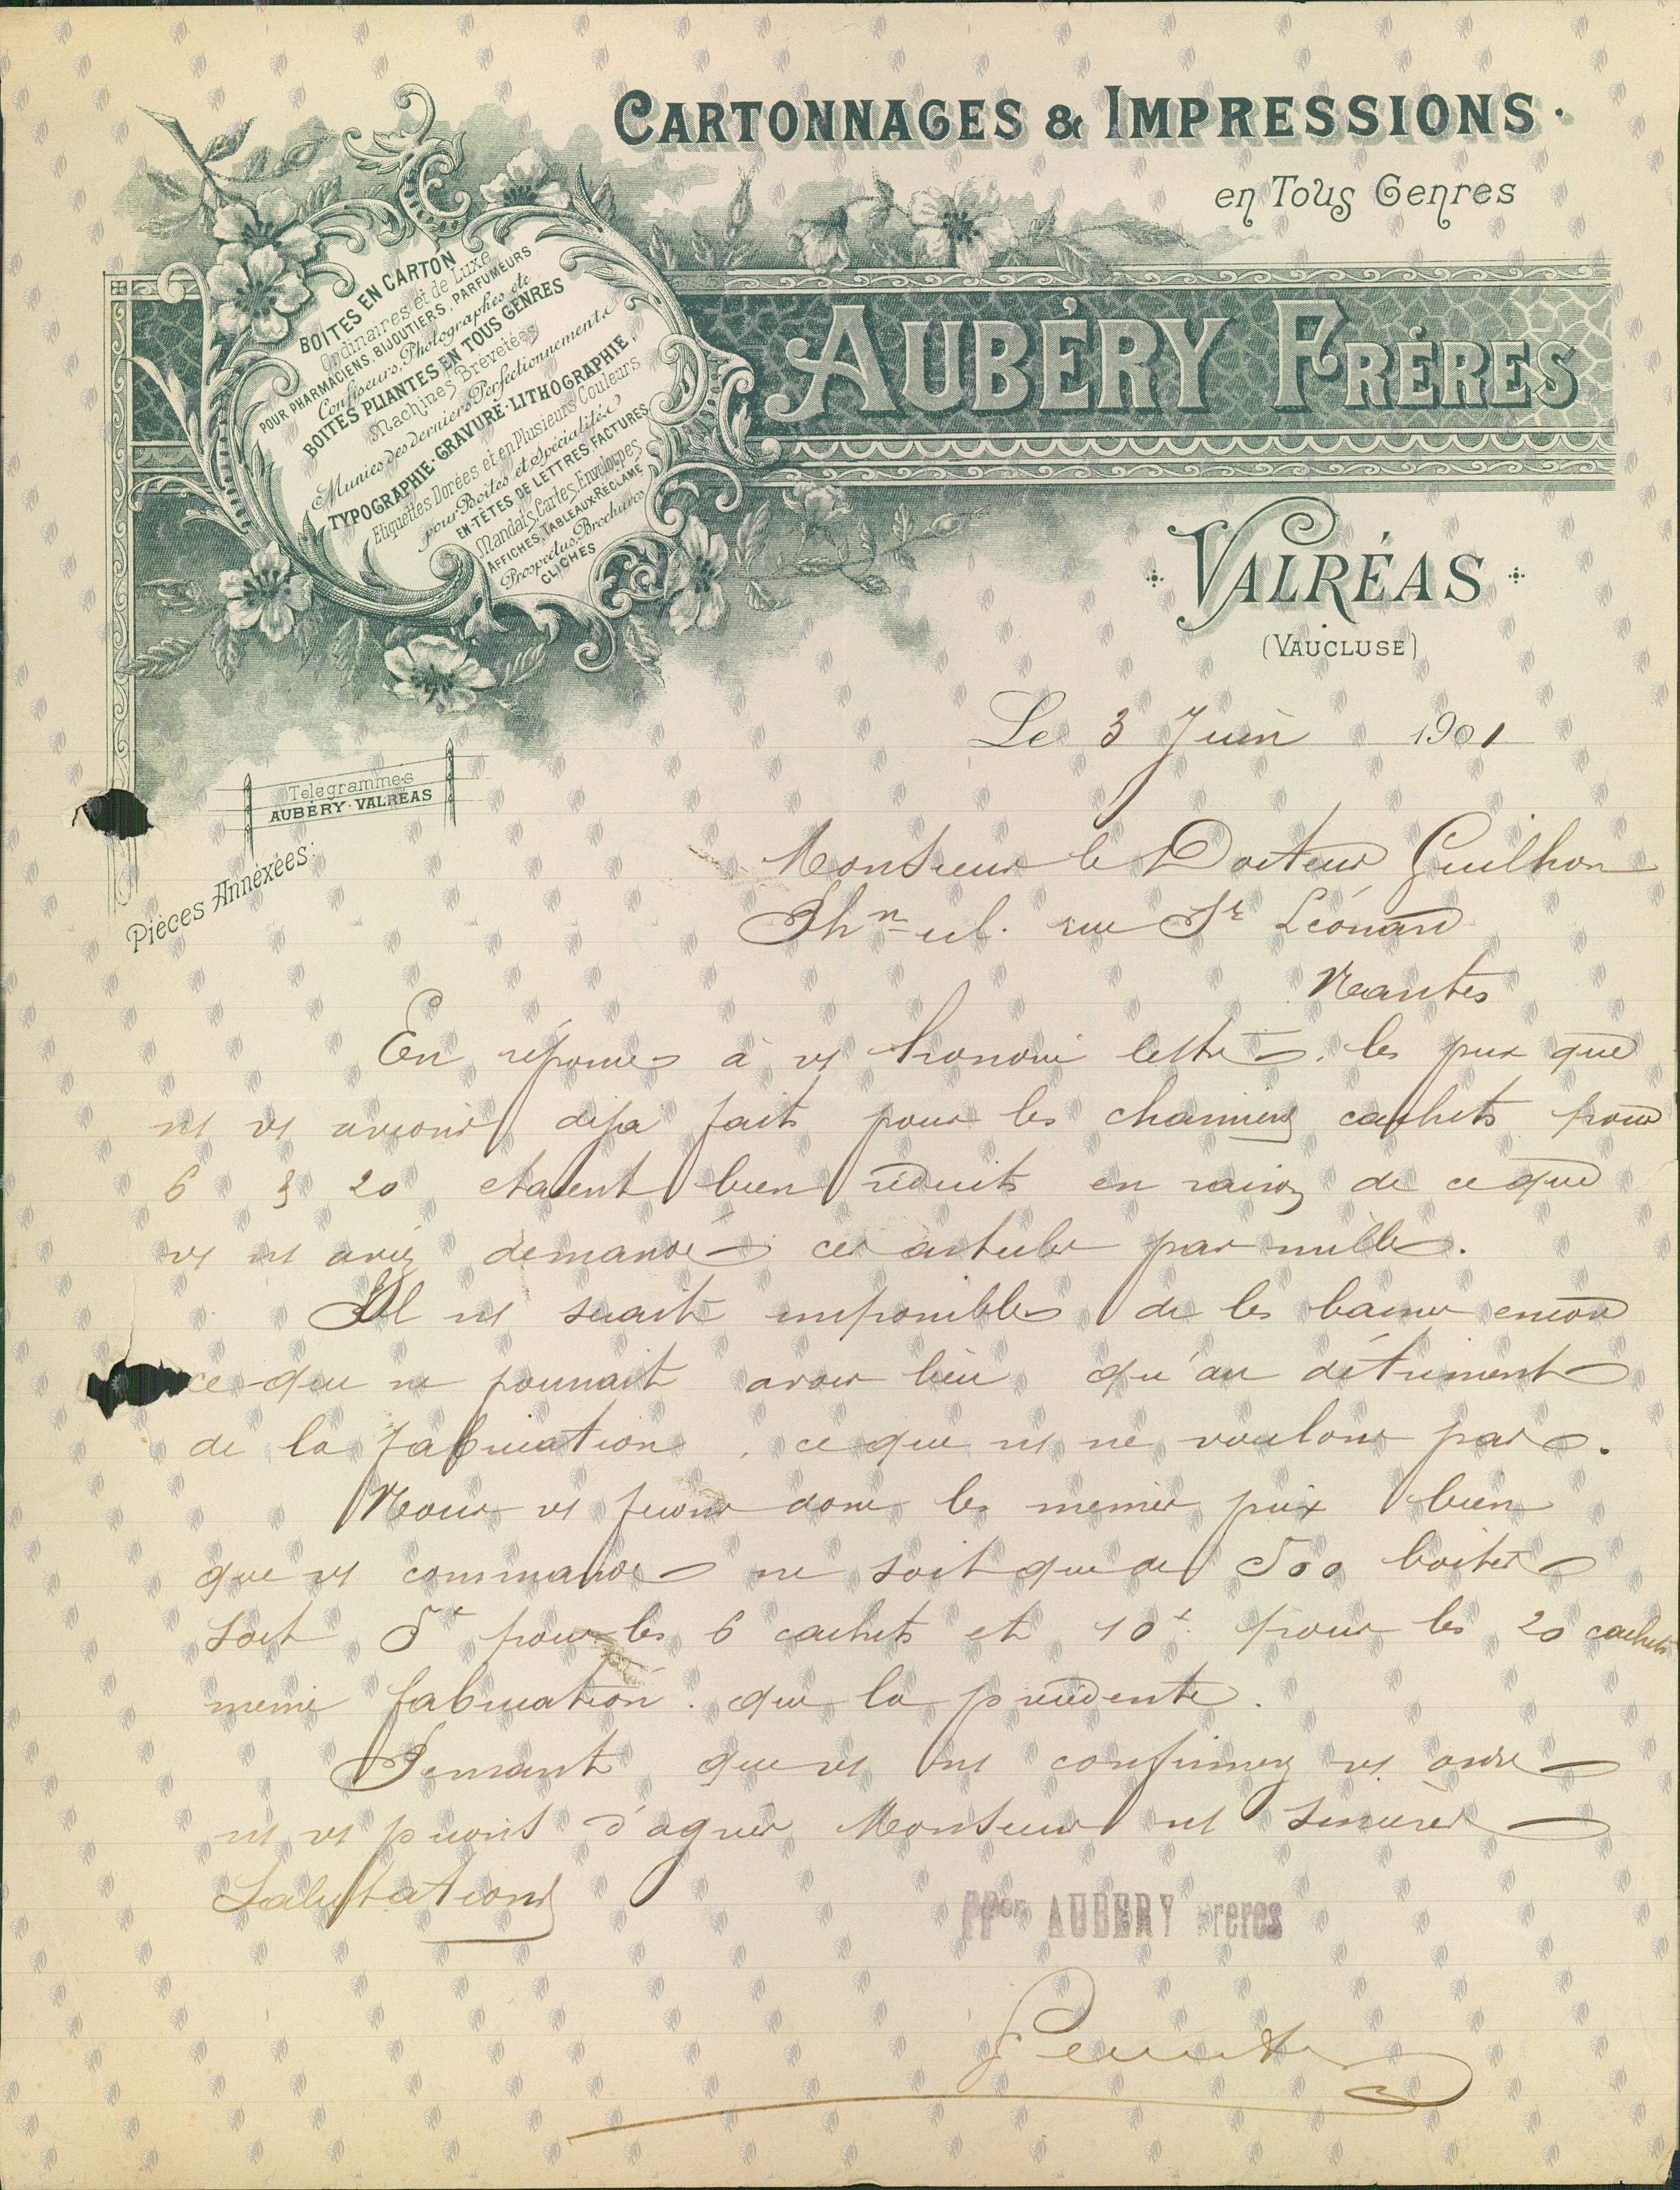 CARTONNAGES & IMPRESSIONS
en Tous Genres
AUBÉRY FRÈRES
VALRÉAS
(VAUCLUSE)
BOITES EN CARTON
Ordinaires et de Luxe
POUR PHARMACIENS, BIJOUTIERS, PARFUMEURS
Confiseurs, Photographes etc
BOITES PLIANTES EN TOUS GENRES
Machines Brevetées
Munies des derniers Perfectionnements
TYPOGRAPHIE-GRAVURE-LITHOGRAPHIE
Etiquettes Dorées et en Plusieurs Couleurs
pour Boites et Spécialités
EN-TÊTES DE LETTRES, FACTURES
Mandats, Cartes, Enveloppes
AFFICHES, TABLEAUX-RÉCLAME
Prospectus, Brochures
CLICHÉS
Le 3 Juin 1901
Télégrammes
AUBÉRY-VALRÉAS
Pièces Annéxées:
Monsieur le Docteur Guilhon
Phn rue St Léonard
Nantes
En réponse à vs honoré lettre, les prix que
ns vs avions déja faits pour les charniers cachets pour
6 & 20 etaient bien réduits en raison de ce que
vs ns aviez demandé ces articles par mille.
Il ns serait impossible de les baisser encore
ce que ne pourrait avoir lieu qu'au détriment
de la fabrication, ce que ns ne voulons pas.
Nous vs ferons donc les memes prix bien
que vs commande ne soit que de 500 boites
soit 5f pour les 6 cachets et 10f pour les 20 cachets
meme fabrication que la précédente.
Pensant que vs ns confirmez vs ordre
ns vs prions d'agréer Monsieur ns sincères
Salutations
PPon AUBERY Freres